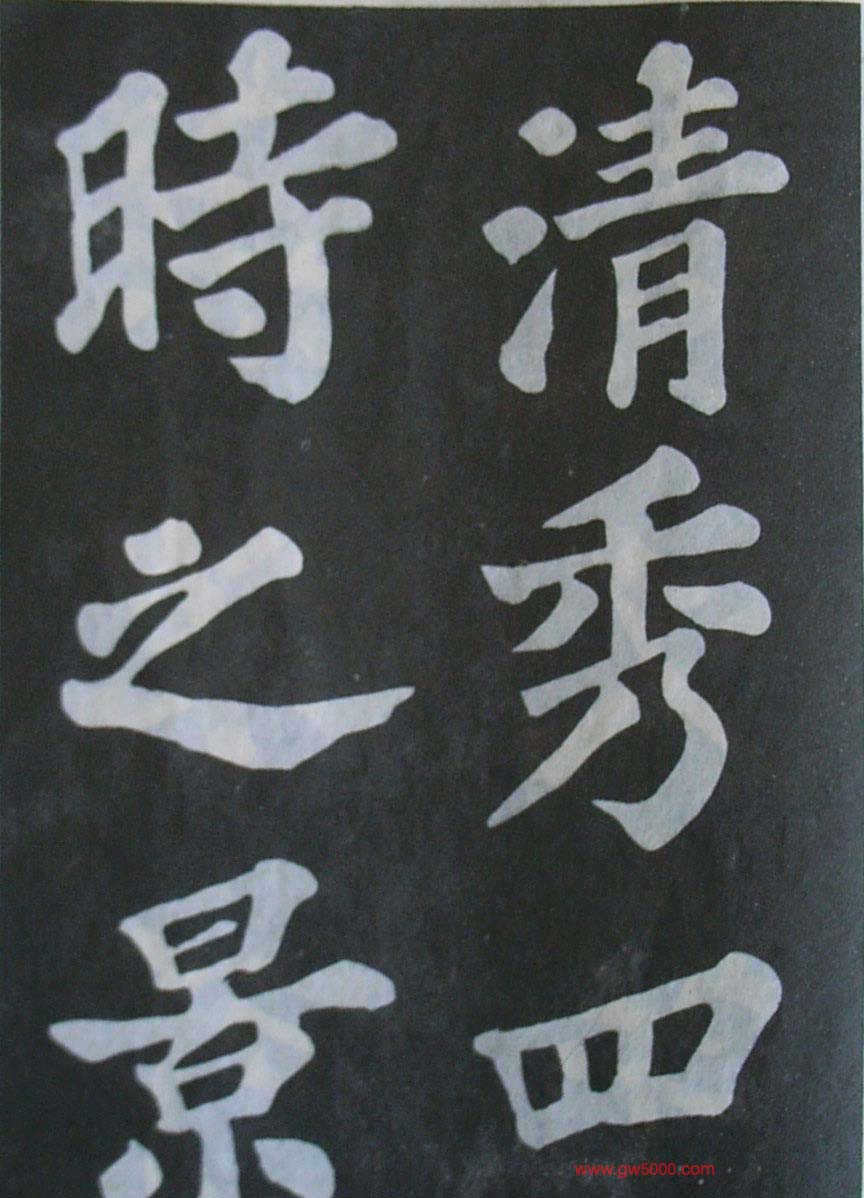 清秀四
時之景
www.gw5000.com